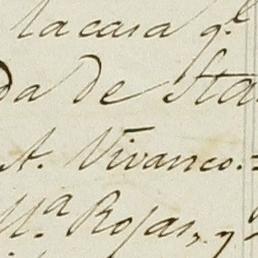 la casa q.e l
da de Sta
A. Vivanco.=
M.a Rojas, y